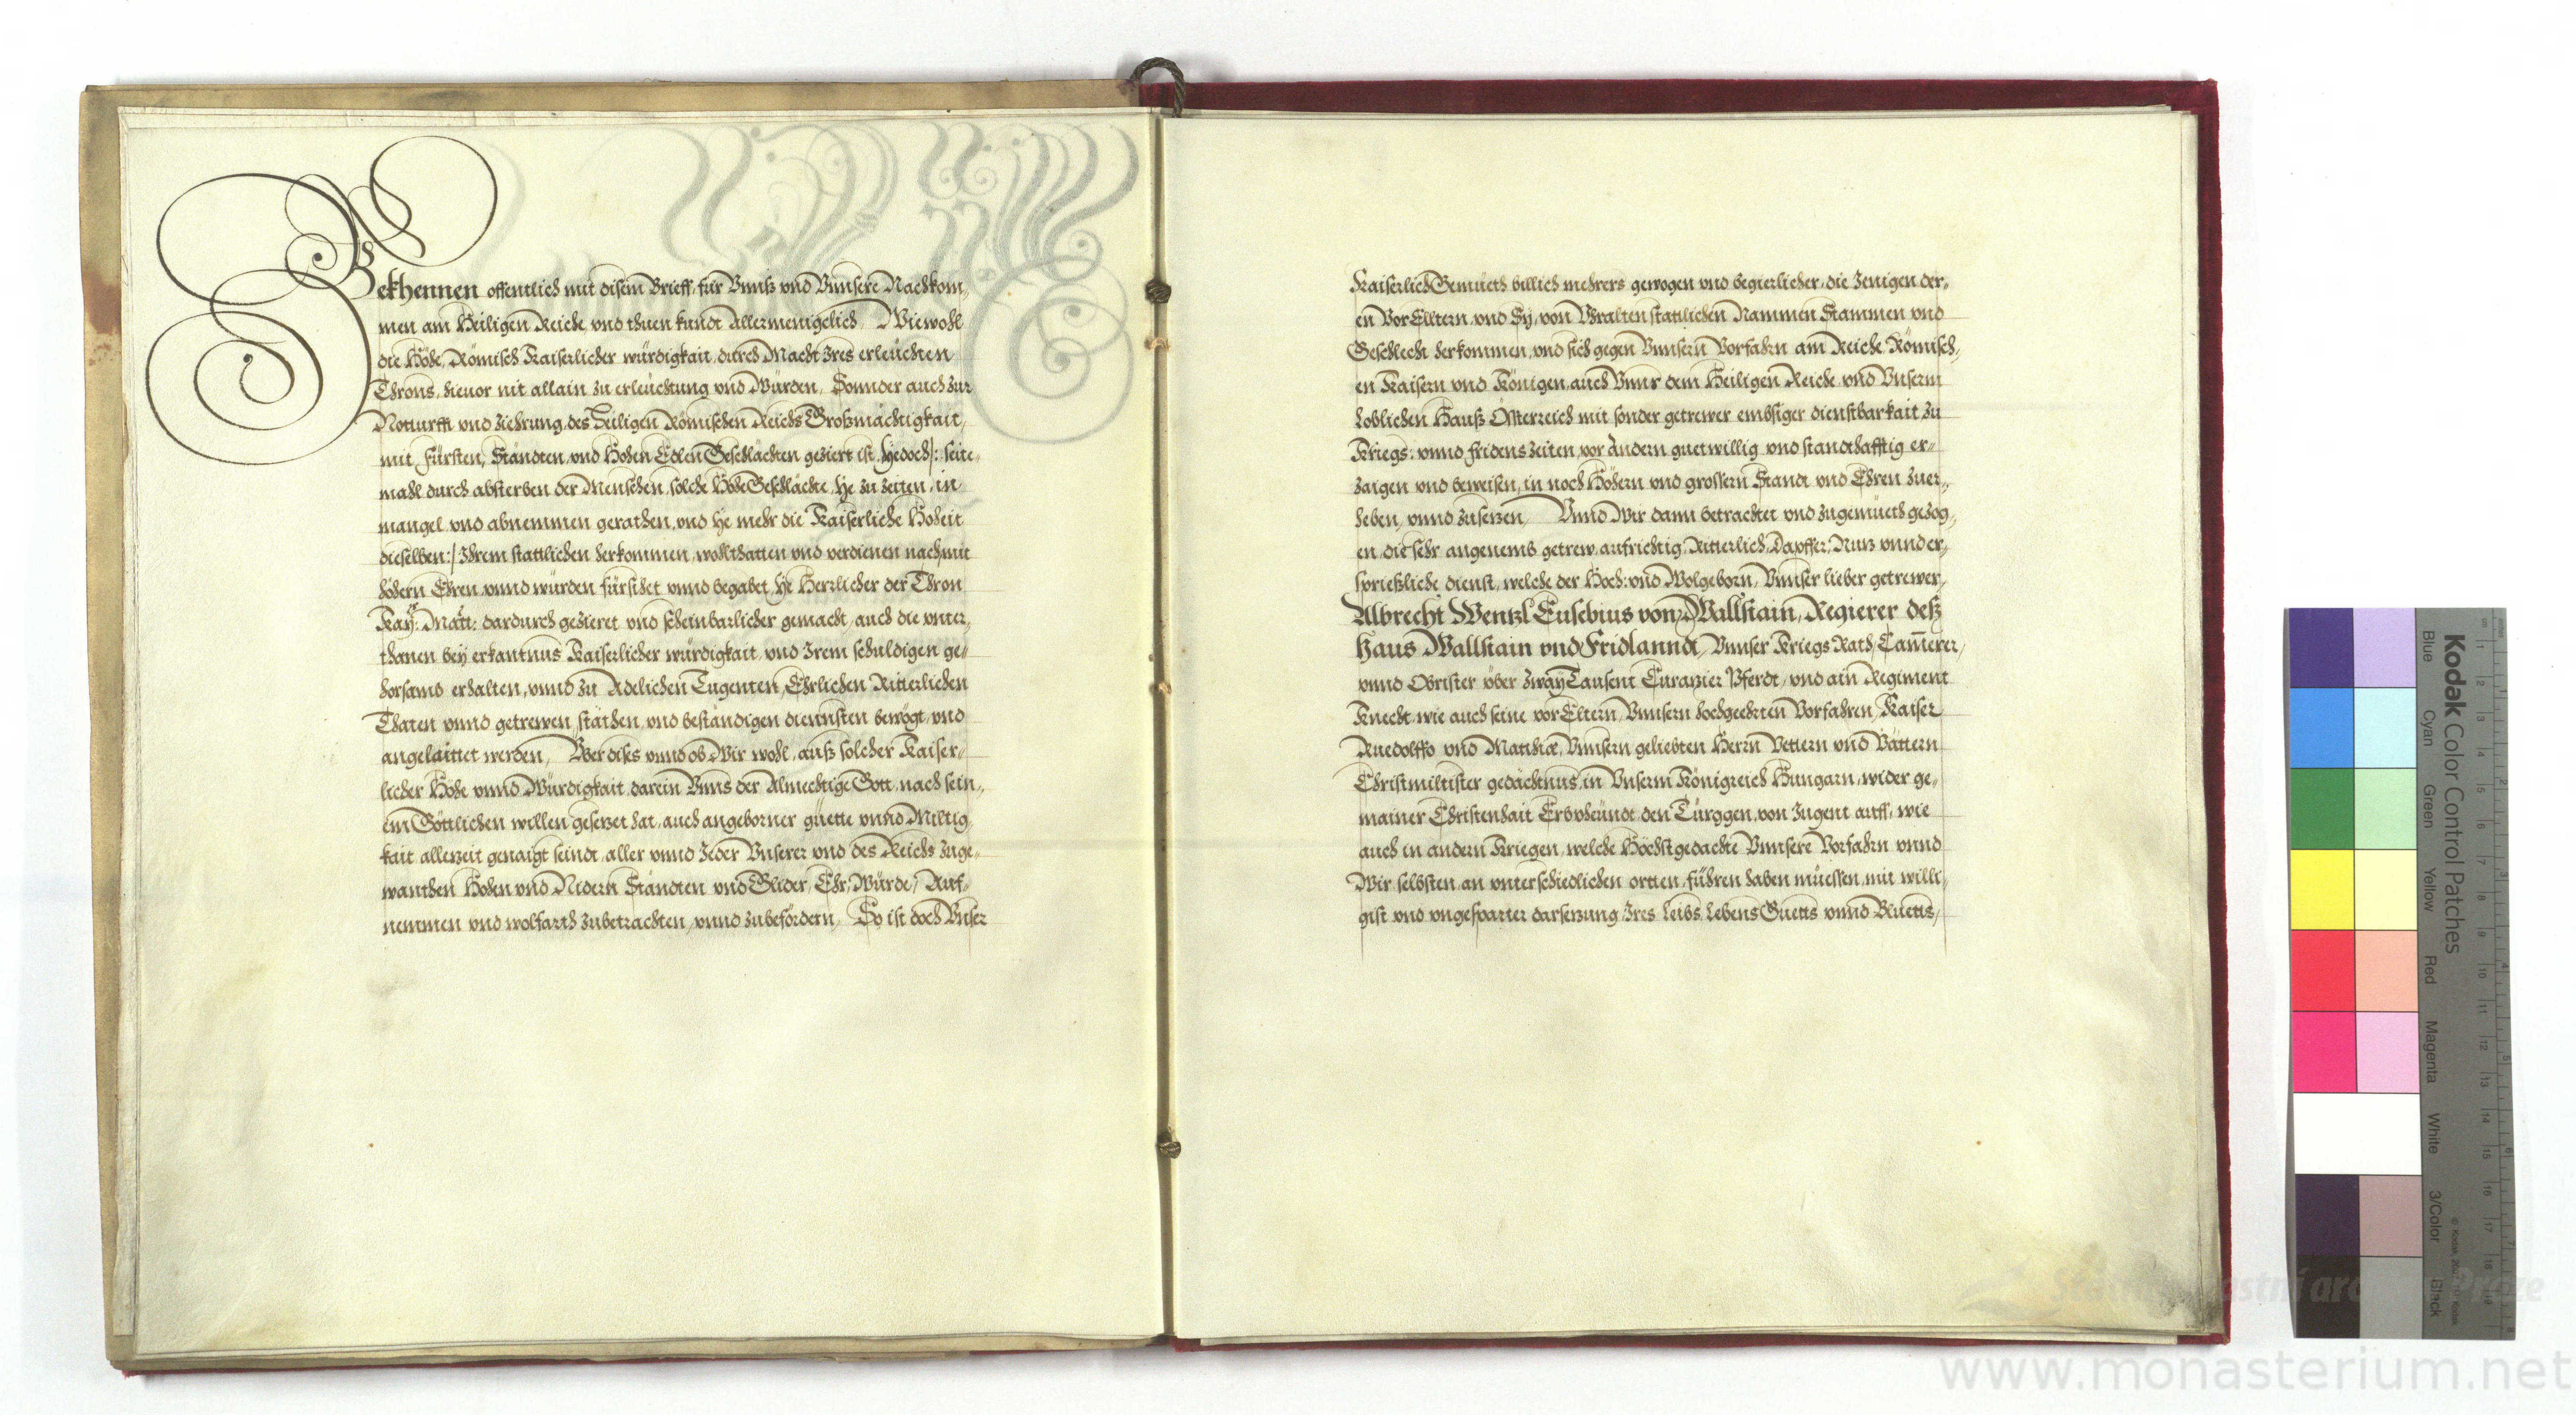 Bekhennen offentlich mit disem Brieff, für Vnnß vnd Vnnsere Nachkom„
men am Heiligen Reiche, vnd thuen kundt Allermenigelich, Wiewohl
die Höhe, Römisch Kaiserlicher würdigkait, durch Macht Ires erleuchten
Throns, hieuor nit allain zu erleuchtung vnd Würden, Sonnder auch zur
Notturfft vnd Ziehrung, des Heiligen Römischen Reichs Großmächtigkait,
mit Fürsten, Ständten, vnd Hohen Edlen Geschlächten geziert ist, Yedoch/: seite„
mahl durch absterben der Menschen, solche Hohe Geschlächte, ye zu zeiten, in
mangel vnd abnemmen gerathen, vnd ye mehr die Kaiserliche Hoheit
dieselben:/ Ihrem stattlichen herkommen, wohlthatten vnd verdienen nach, mit
höhern Ehren, vnnd würden fürsihet vnnd begabet, ye Herrlicher der Thron
Kay: Maÿtt: dardurch gezieret vnd scheinbarlicher gemacht, auch die vnter„
thanen bey erkantnus Kaiserlicher würdigkait, vnd Irem schuldigen ge„
horsamb erhalten, vnnd zu Adelichen Tugenten, Ehrlichen Ritterlichen
Thaten vnnd getrewen, stäthen, vnd beständigen diennsten bewögt, vnd
angelaittet werden, Vber dises vnnd ob Wir wohl, auß solcher Kaiser„
licher Höhe vnnd Würdigkait, darein Vnns der Almechtige Gott, nach sein„
em Göttlichen willen gesetzet hat, auch angeborner güette vnnd Miltig
kait, allezeit genaigt seindt, aller vnnd Ieder Vnserer vnd des Reichs zuge„
wanthen Hohen vnd Nidern Ständten vnd Glider, Ehr, Würde, Auf„
nemmen vnd wolfarth zubetrachten, vnnd zubefördern, So ist doch Vnser
Kaiserlich Gemüeth billich mehrers gewogen vnd begierlicher, die Ienigen, der„
en Vor Elltern, vnd Sy, von Vhralten stattlichen Nammen Stammen vnd
Geschlecht herkommen, vnd sich gegen Vnnsern Vorfahrn am Reiche, Römisch„
en Kaisern vnd Königen, auch Vnns dem Heiligen Reiche, vnd Vnserm
loblichen Hauß Österreich mit sonder getrewer embsiger dienstbarkait zu
Kriegs: vnnd fridens zeiten, vor Andern guetwillig vnd standthafftig er„
zaigen vnd beweisen, in noch Höhern vnd grossern Standt vnd Ehren zuer„
heben, vnnd zusetzen, Vnnd Wir dann betrachtet vnd zugemüeth gezog„
en, die sehr angenemb, getrew, aufrichtig, Ritterlich, Dapffer, Nutz vnnd er„
sprießliche dienst, welche der Hoch: vnd Wolgeborn, Vnnser lieber getrewer,
Albrecht Wentzl Eusebius von Wallstain, Regierer deß
Haus Wallstain vnd Fridlanndt, Vnnser Kriegs Rath, Cam̄erer,
vnnd Obrister vber zway Tausent Curazier Pferdt, vnd ain Regiment
Knecht, wie auch seine vor Eltern, Vnnsern hochgeehrten Vorfahren, Kaiser
Ruedolffo vnd Matthiæ, Vnnsern geliebten Herrn Vettern vnd Vättern
Christmiltister gedächtnus, in Vnserm Königreich Hungarn, wider ge„
mainer Christenhait Erbvheündt den Türggen, von Iugent auff, wie
auch in andern Kriegen, welche Höchstgedachte Vnnsere Vorfahrn vnnd
Wir selbsten, an vnterschiedlichen ortten, führen haben müessen, mit willi„
gist vnd vngesparter darsetzung Ires Leibs, Lebens Guetts vnnd Bluetts,
Kodak Color Control Patches
Blue Cyan Green Yellow Red Magenta White 3/Color Black
www.monasterium.net